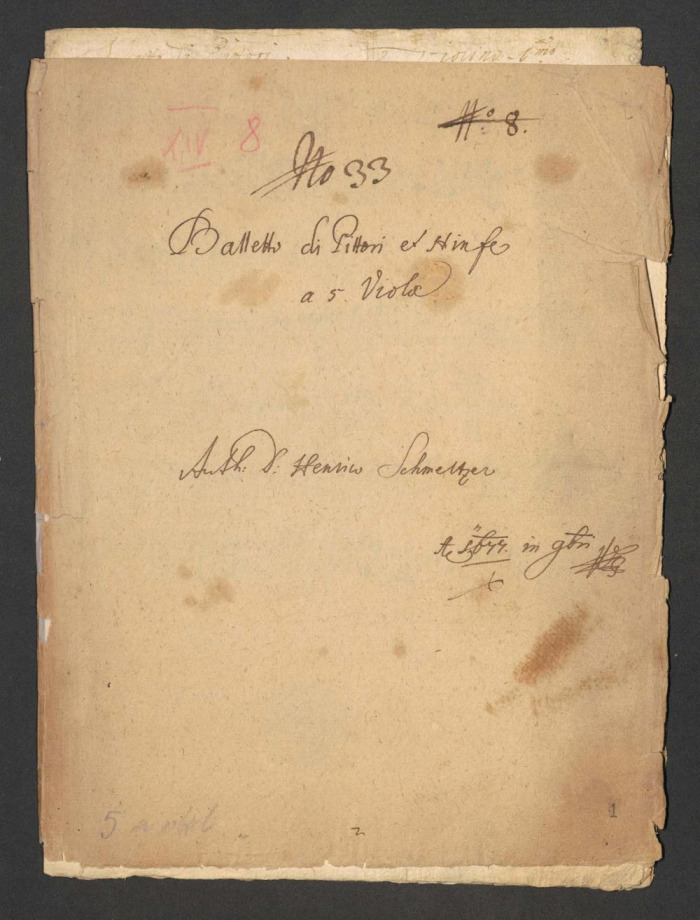 XIV 8
No: 8.
No 33
Balletto di Pittori et Ninfe
a 5. Viole
Auth: D: Henrico Schmeltzer
A in
5
2
1